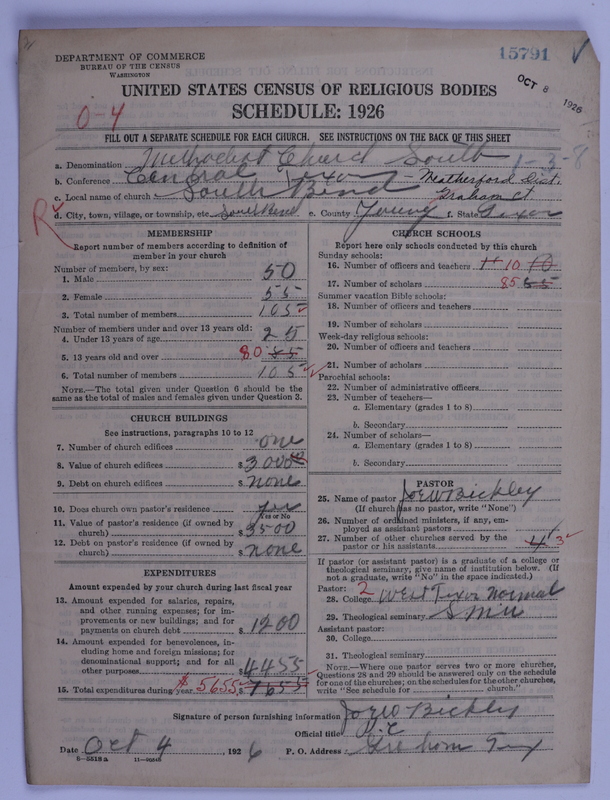 15791
DEPARTMENT OF COMMERCE
BUREAU OF THE CENSUS
WASHINGTON
OCT 8 1926
UNITED STATES CENSUS OF RELIGIOUS BODIES
SCHEDULE: 1926
0-4
FILL OUT A SEPARATE SCHEDULE FOR EACH CHURCH. SEE INSTRUCTIONS ON THE BACK OF THIS SHEET
a. Denomination Methodist Church South 1-3-8
b. Conference Central Texas - Weatherford Dist.
c. Local name of church South Bend Graham Ct.
d. City, town, village, or township, etc. South Bend e. County Young f. State Texas
R
MEMBERSHIP
Report number of members according to definition of member in your church
Number of members, by sex:
1. Male 50
2. Female 55
3. Total number of members 105
Number of members under and over 13 years old:
4. Under 13 years of age 25
5. 13 years old and over 80 85
6. Total number of members 105
NOTE.—The total given under Question 6 should be
same as the total of males and females given under Question 3.
CHURCH BUILDINGS
See instructions, paragraphs 10 to 12
7. Number of church edifices one
8. Value of church edifices $ 3000
9. Debt on church edifices $ none
10. Does church own pastor's residence yes
Yes or No
11. Value of pastor's residence (if owned by
church) $ 3500
12. Debt on pastor's residence (if owned by
church) $ none
EXPENDITURES
Amount expended by your church during last fiscal year
13. Amount expended for salaries, repairs,
and other running expenses; for im-
provements or new buildings; and for
payments on church debt $ 1200
14. Amount expended for benevolences, in-
cluding home and foreign missions; for
denominational support; and for all
other purposes $ 4455
15. Total expenditures during year $ 5655 $ 7655
CHURCH SCHOOLS
Report here only schools conducted by this church
Sunday schools:
16. Number of officers and teachers 11 10 10
17. Number of scholars 85 65
Summer vacation Bible schools:
18. Number of officers and teachers
19. Number of scholars
Week-day religious schools:
20. Number of officers and teachers
21. Number of scholars
Parochial schools:
22. Number of administrative officers
23. Number of teachers—
a. Elementary (grades 1 to 8)
b. Secondary
24. Number of scholars—
a. Elementary (grades 1 to 8)
b. Secondary
PASTOR
25. Name of pastor Joe W Bickley
(If church has no pastor, write "None")
26. Number of ordained ministers, if any, em-
ployed as assistant pastors
27. Number of other churches served by the
pastor or his assistants 4 3
If pastor (or assistant pastor) is a graduate of a college or
theological seminary, give name of institution below. (If
not a graduate, write "No" in the space indicated.)
Pastor: 2
28. College West Texas Normal
29. Theological seminary S M U
Assistant pastor:
30. College
31. Theological seminary
NOTE.—Where one pastor serves two or more churches,
Questions 28 and 29 should be answered only on the schedule
for one of the churches; on the schedules for the other churches,
write "See schedule for church."
Signature of person furnishing information Joe W Bickley
Official title P. C.
Date Oct 4, 1926 P. O. Address Graham Tex
8-5518 a